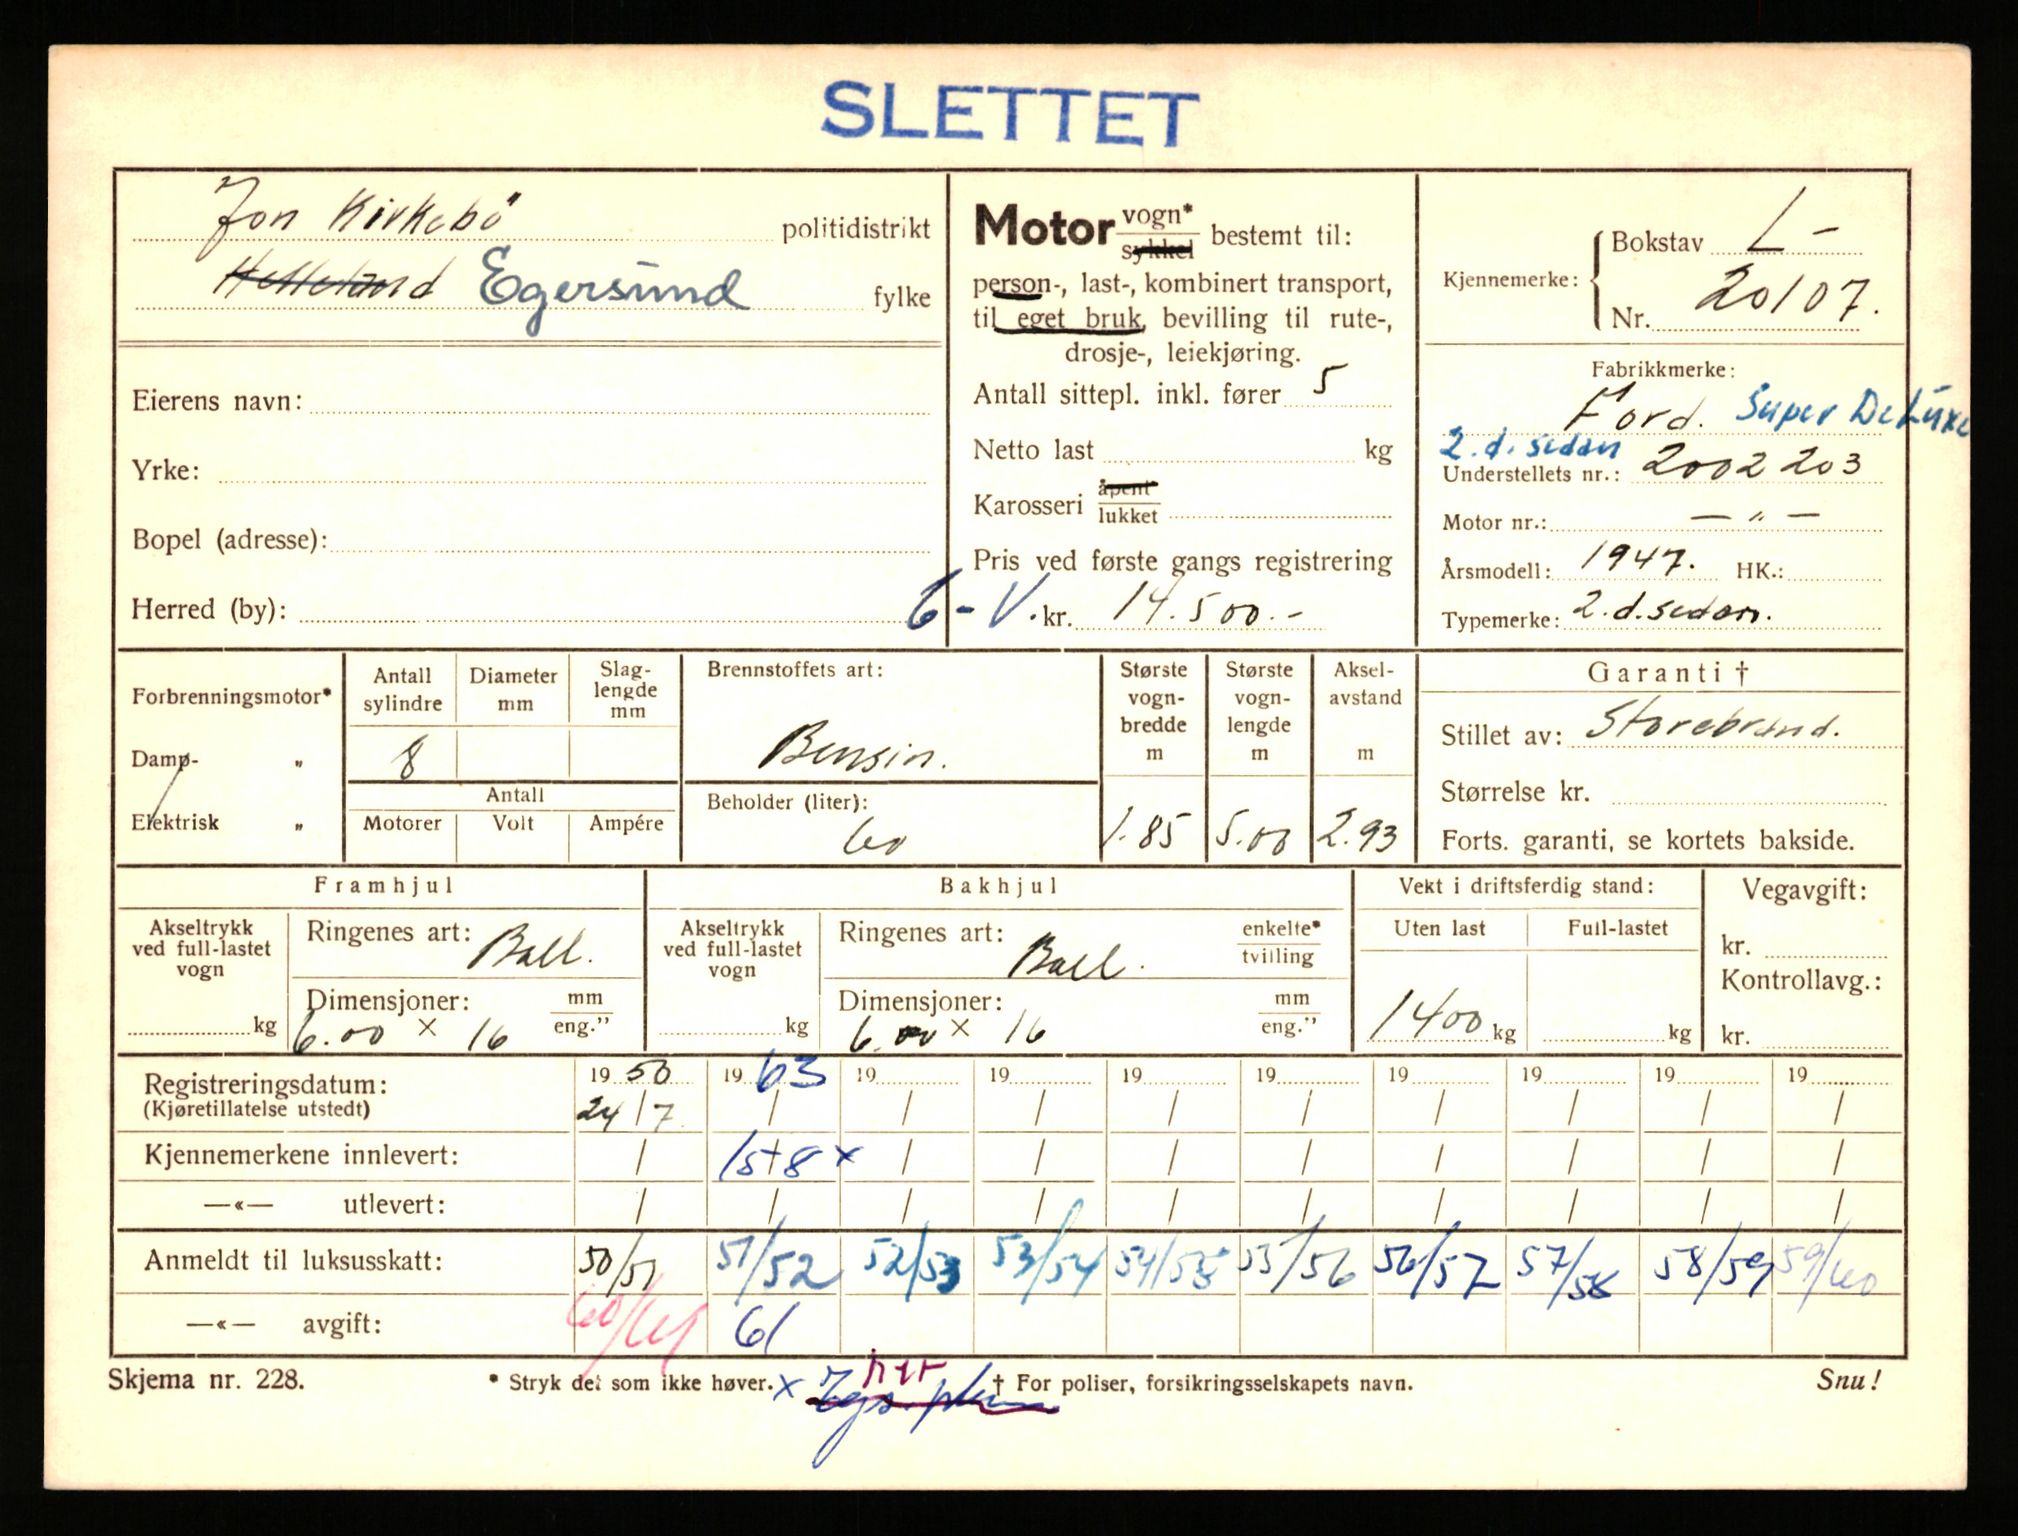 SLETTET
Jon Kirkebö politidistrikt
Helleland Egersund fylke
Eierens navn:
Yrke:
Bopel (adresse):
Herred (by):
Motor vogn* sykkel bestemt til:
person-, last-, kombinert transport,
til eget bruk, bevilling til rute-,
drosje-, leiekjøring.
Antall sittepl. inkl. fører 5
Netto last kg
Karosseri åpent lukket
Pris ved første gangs registrering
6-V. kr. 14.500.-
Kjennemerke: Bokstav L-
Nr. 20107.
Fabrikkmerke:
Ford. Super DeLuxe
2.d. sedan
Understellets nr.: 2002203
Motor nr.: — " —
Årsmodell: 1947. HK.:
Typemerke: 2.d.sedan.
Forbrenningsmotor*
Damp- "
Elektrisk "
Antall sylindre
Diameter mm
Slag-lengde mm
8
Antall
Motorer Volt Ampére
Brennstoffets art:
Bensin.
Beholder (liter):
60
Største vogn-bredde m
1.85
Største vogn-lengde m
5.00
Aksel-avstand m
2.93
Garanti †
Stillet av: Storebrand.
Størrelse kr.
Forts. garanti, se kortets bakside.
Framhjul
Akseltrykk ved full-lastet vogn
kg
Ringenes art: Ball.
Dimensjoner: mm eng."
6.00 × 16
Bakhjul
Akseltrykk ved full-lastet vogn
kg
Ringenes art: Ball. enkelte* tvilling
Dimensjoner: mm eng."
6.00 × 16
Vekt i driftsferdig stand:
Uten last Full-lastet
1400 kg kg
Vegavgift:
kr.
Kontrollavg.:
kr.
Registreringsdatum: 19 50 19 63 19 19 19 19 19 19 19 19
(Kjøretillatelse utstedt) 24/7 / / / / / / / / /
Kjennemerkene innlevert: / 15+8 x / / / / / / / /
—«— utlevert: / / / / / / / / / /
Anmeldt til luksusskatt: 50/51 51/52 52/53 53/54 54/55 55/56 56/57 57/58 58/59 59/60
—«— avgift: 60/61 61
Skjema nr. 228. * Stryk det som ikke høver. x † For poliser, forsikringsselskapets navn. Snu!